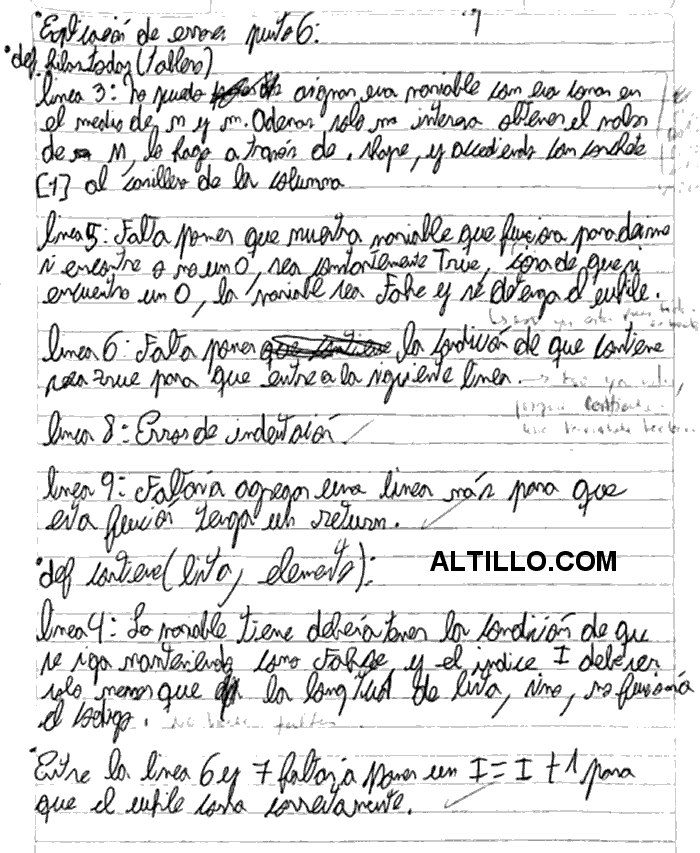 Explicación de errores punto 6:
1
• def hilos todos (tablero)
linea 3: No puedo asignar esa variable con esa coma en
el medio de n y m. Ademas, solo me interesa obtener el valor
de M, lo hago a través de .shape, y accediendo con corchete
[1] al casillero de la columna
linea 5: Falta poner que nuestra variable que funciona para decirme
si encontre o no un 0, sea constantemente True, cosa de que si
encuentro un 0, la variable sea False y se detenga el while.
linea 6: Falta poner que contiene la condición de que contiene
sea true para que entre a la siguiente linea.
linea 8: Error de indentación
linea 9: Faltaria agregar una linea más para que
esta función tenga un return.
• def contiene (lista, elemento):
ALTILLO.COM
linea 4: La variable tiene deberia tener la condición de que
se siga manteniendo como False, y el indice I debe ser
solo menor que la longitud de lista, sino, no funcionaria
el codigo.
• Entre la linea 6 y 7 faltaria poner un I = I + 1 para
que el while corra correctamente.